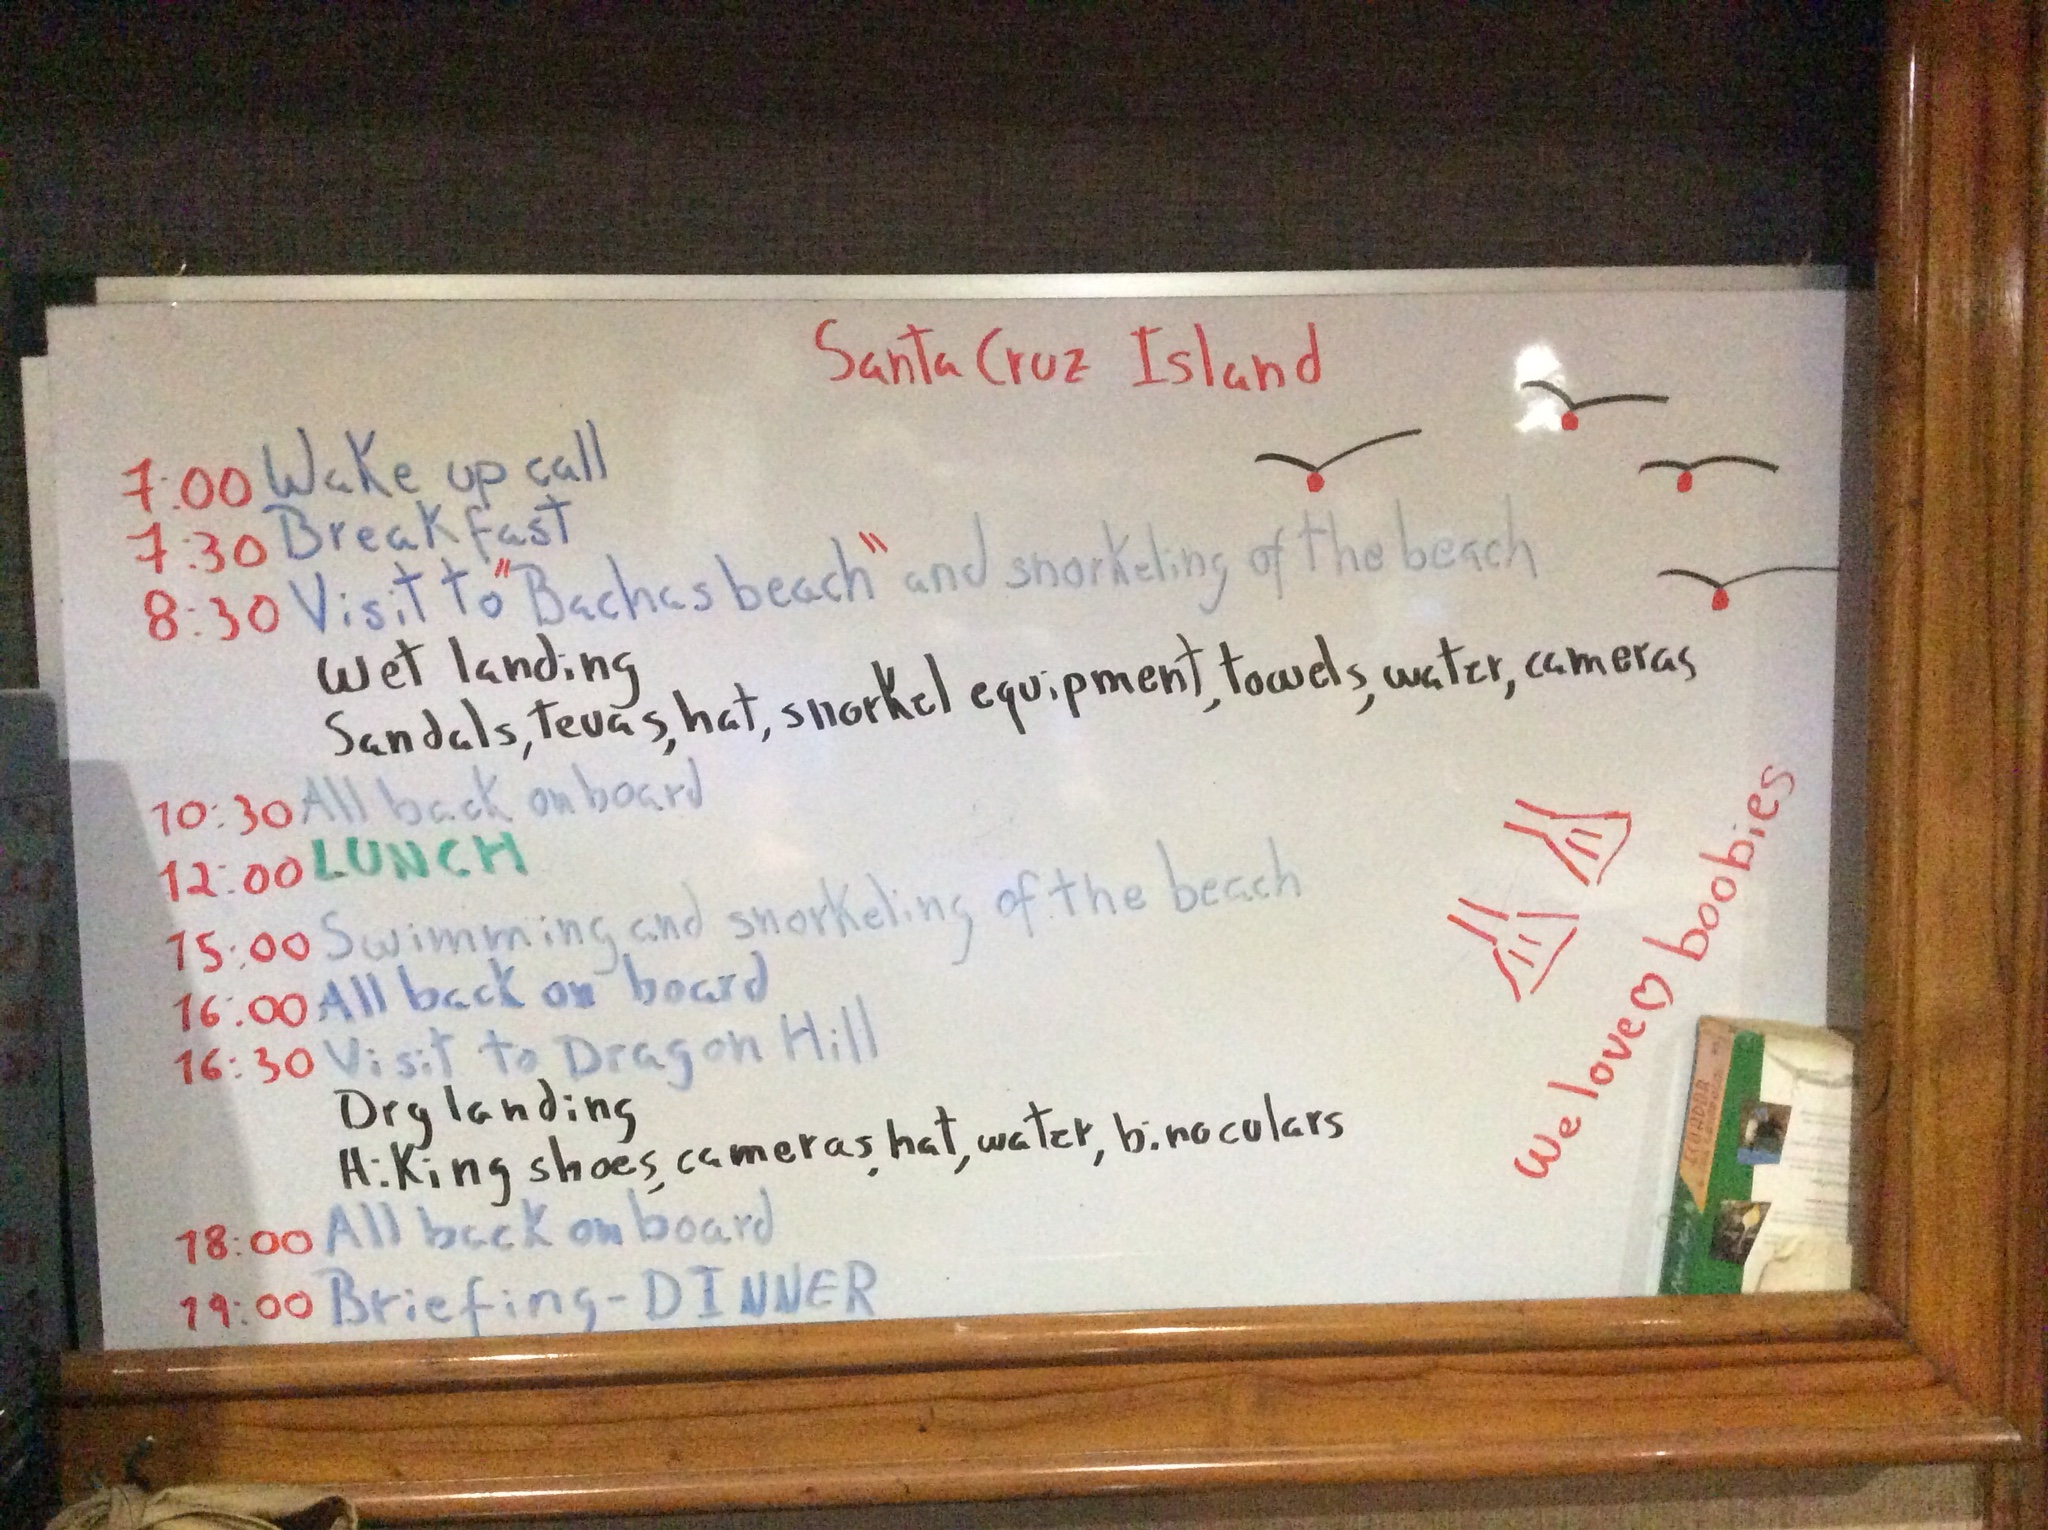 Santa Cruz Island
7:00 Wake up call
7:30 Breakfast
8:30 Visit to "Bachas beach" and snorkeling of the beach
Wet landing
Sandals, tevas, hat, snorkel equipment, towels, water, cameras
10:30 All back on board
12:00 LUNCH
15:00 Swimming and snorkeling of the beach
16:00 All back on board
16:30 Visit to Dragon Hill
Dry landing
Hiking shoes, cameras, hat, water, binoculars
18:00 All back on board
19:00 Briefing-DINNER
We love ♡ boobies